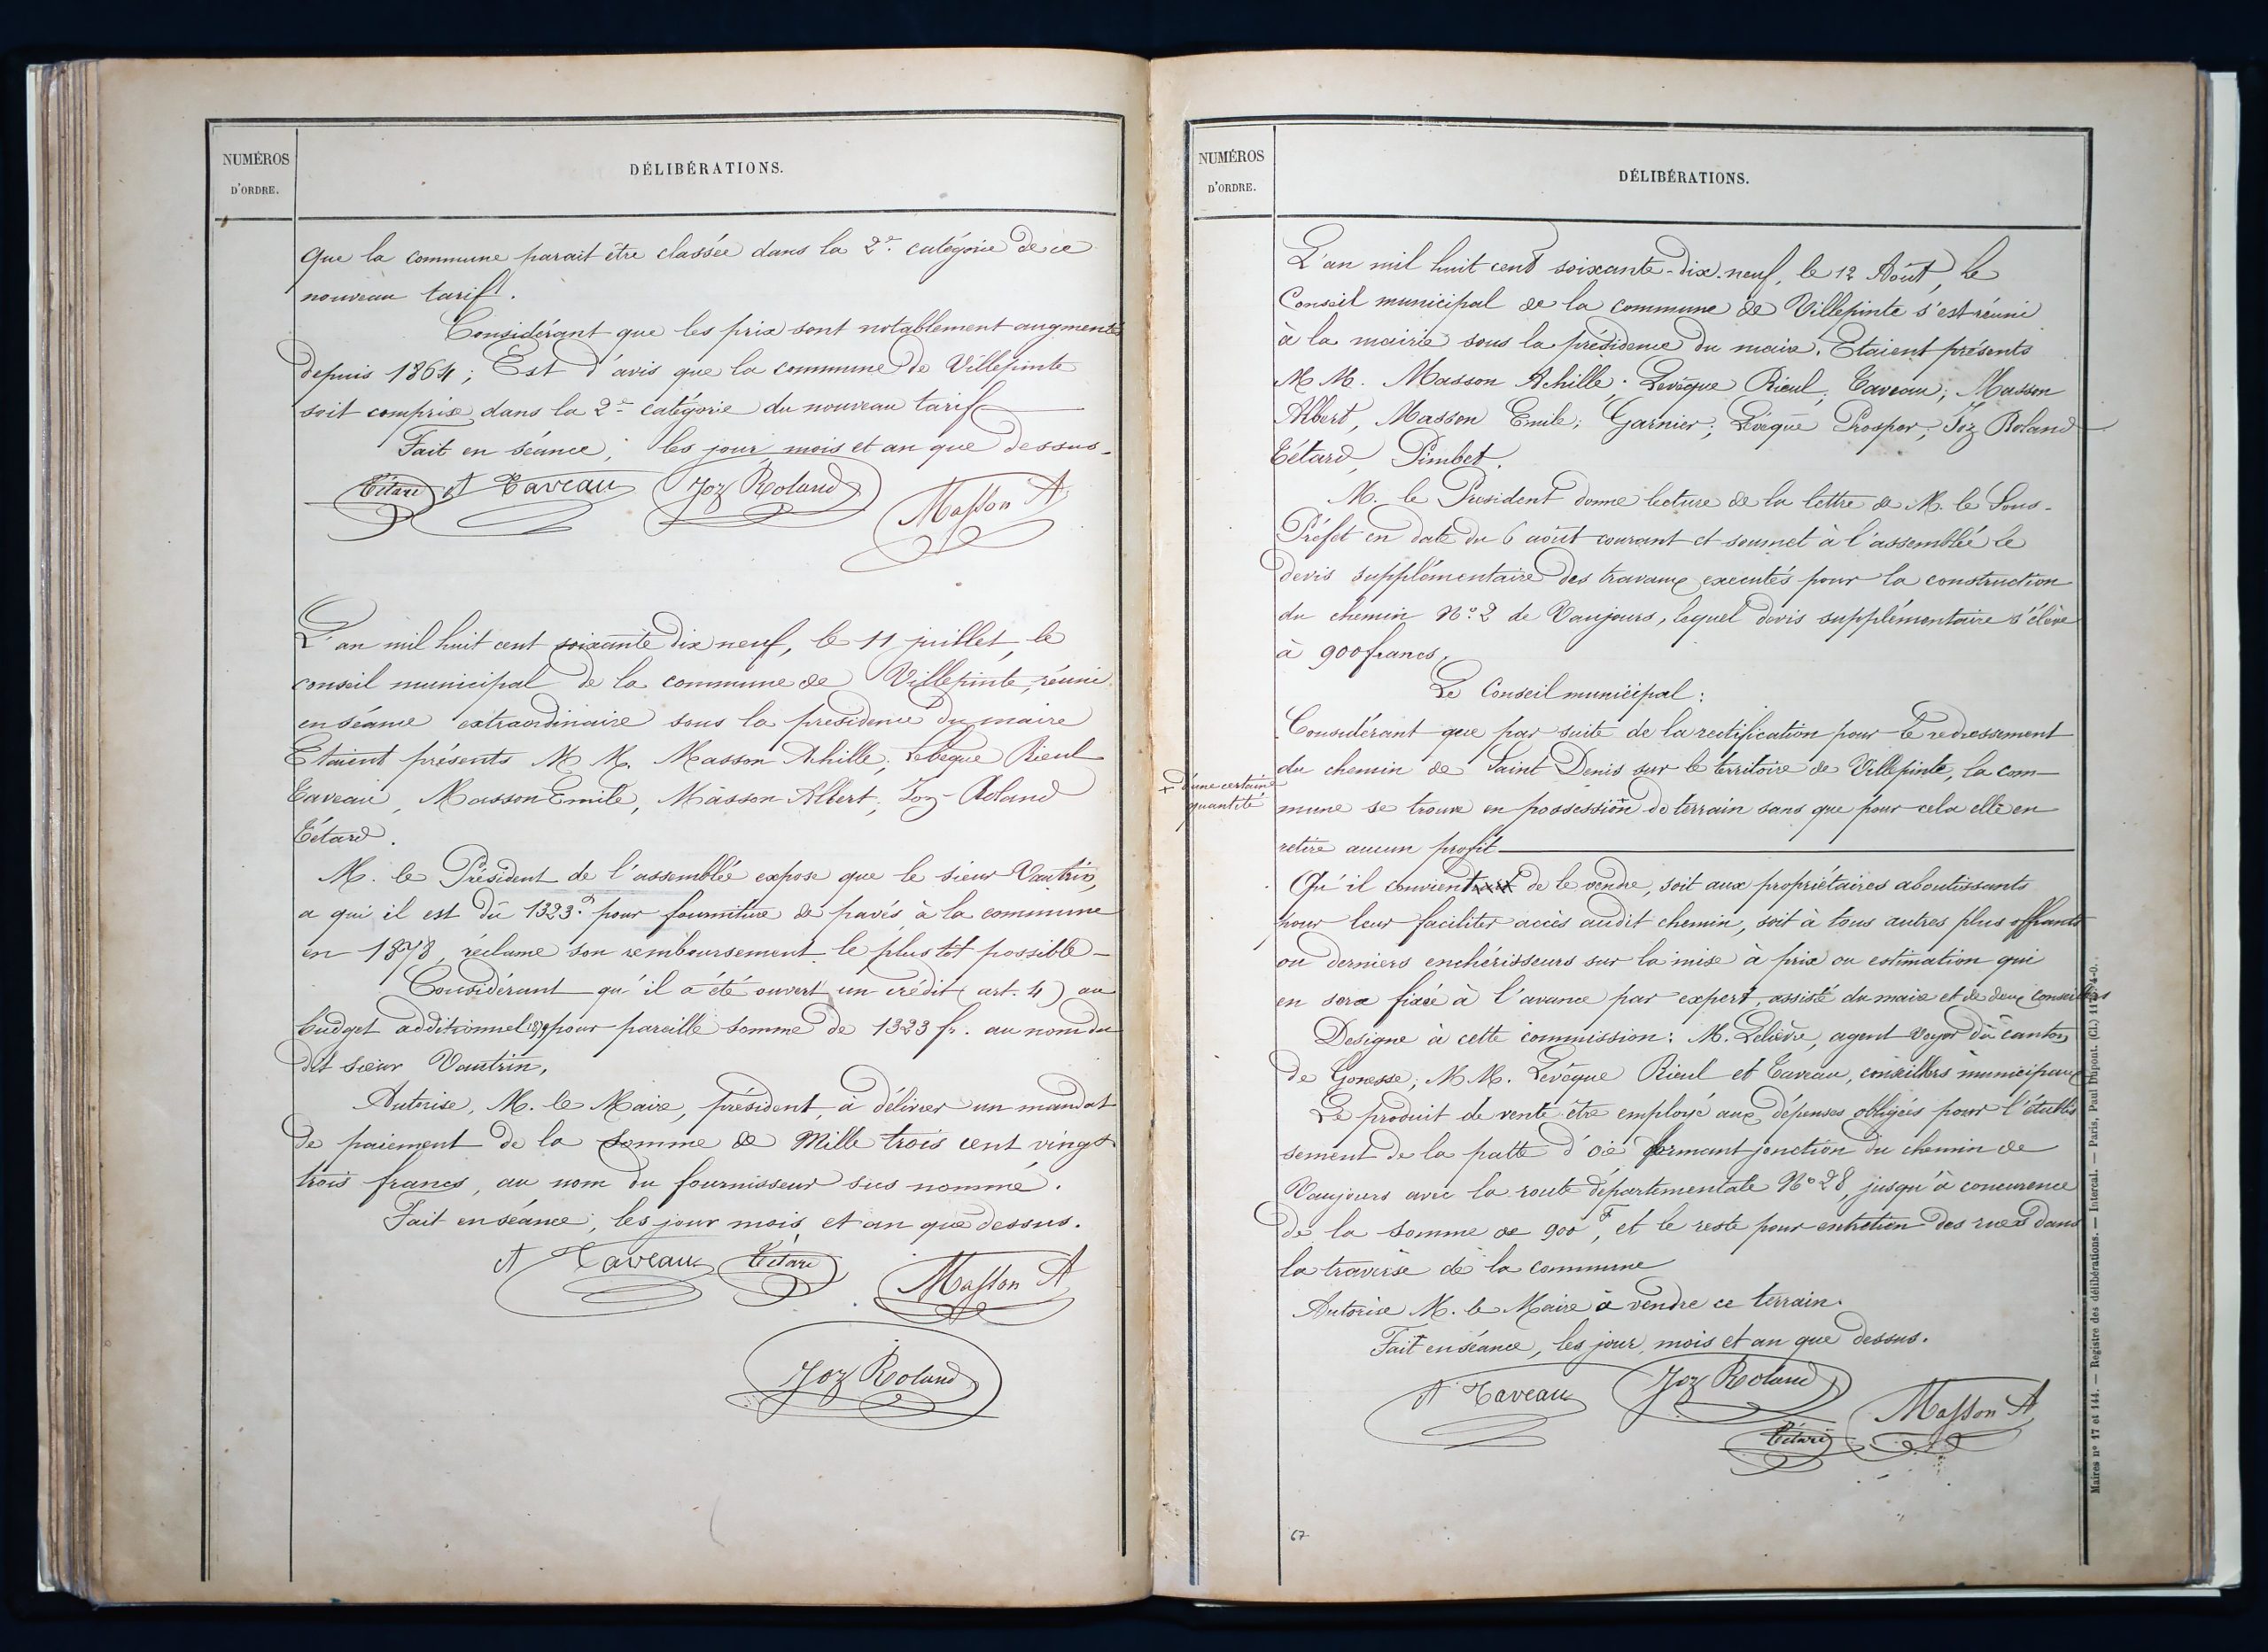 NUMÉROS
D'ORDRE.
DÉLIBÉRATIONS.
que la commune parait être classée dans la 2e. catégorie de ce
nouveau tarif.
Considérant que les prix sont notablement augmentés
depuis 1864; Est d'avis que la commune de Villepinte
soit comprise dans la 2e catégorie du nouveau tarif
Fait en séance, les jour, mois et an que dessus.
Tétard A Taveau Joz Roland
Masson A
L'an mil huit cent soixante dix neuf, le 11 juillet, le
conseil municipal de la commune de Villepinte, réuni
en séance extraordinaire sous la presidence du maire
Etaient présents M M. Masson Achille, Levêque Rieul
Taveau, Masson Emile, Masson Albert, Joz-Roland
Tétard.
M. le Président de l'assemblée expose que le sieur Vautrin,
a qui il est dû 1323.f pour fourniture de pavés à la commune
en 1878, réclame son remboursement le plus tôt possible-
Considérant qu'il a été ouvert un crédit (art. 4) au
budget additionnel 1879 pour pareille somme de 1323 fr. au nom du
dit sieur Vautrin,
Autorise, M. le Maire, président, à délivrer un mandat
de paiement de la somme de Mille trois cent vingt
trois francs, au nom du fournisseur sus nommé.
Fait en séance, les jour mois et an que dessus.
A Taveau Tétard Masson A
Joz Roland
NUMÉROS
D'ORDRE.
DÉLIBÉRATIONS.
L'an mil huit cent soixante-dix-neuf, le 12 Août, le
Conseil municipal de la commune de Villepinte s'est réuni
à la mairie sous la présidence du maire. Etaient présents
M M. Masson Achille. Levêque Rieul, Taveau; Masson
Albert, Masson Emile; Garnier; Lévêque Prosper; Joz Roland
Tétard, Pimbet.
M. le President donne lecture de la lettre de M. le Sous-
Préfet en date du 6 août courant et soumet à l'assemblée le
devis supplémentaire des travaux executés pour la construction
du chemin No. 2 de Vaujours, lequel devis supplémentaire s'élève
à 900 francs.
Le Conseil municipal:
Considérant que par suite de la rectification pour le redressement
du chemin de Saint Denis sur le territoire de Villepinte, la com-
+ d'une certaine
quantité
mune se trouve en possession de terrain sans que pour cela elle en
retire aucun profit
Qu'il convient de le vendre, soit aux propriétaires aboutissants
pour leur faciliter accès audit chemin, soit à tous autres plus offrants
ou derniers enchérisseurs sur la mise à prix ou estimation qui
en sera fixée à l'avance par expert, assisté du maire et de deux Conseillers
Designe à cette commission: M. Lelièvre, agent Voyer du canton
de Gonesse; M M. Levêque Rieul et Taveau, conseillers municipaux
Le produit de vente être employé aux dépenses obligées pour l'établis
sement de la patte d'oie formant jonction du chemin de
Vaujours avec la route départementale No 28, jusqu'à concurence
de la somme de 900 F, et le reste pour entretien des rues dans
la traverse de la commune
Autorise M. le Maire à vendre ce terrain.
Fait en séance, les jour, mois et an que dessus.
A Taveau Joz Roland Masson A
Tétard
67
Maires no 17 et 144. — Registre des délibérations. — Intercal. — Paris, Paul Dupont. (Cl.)